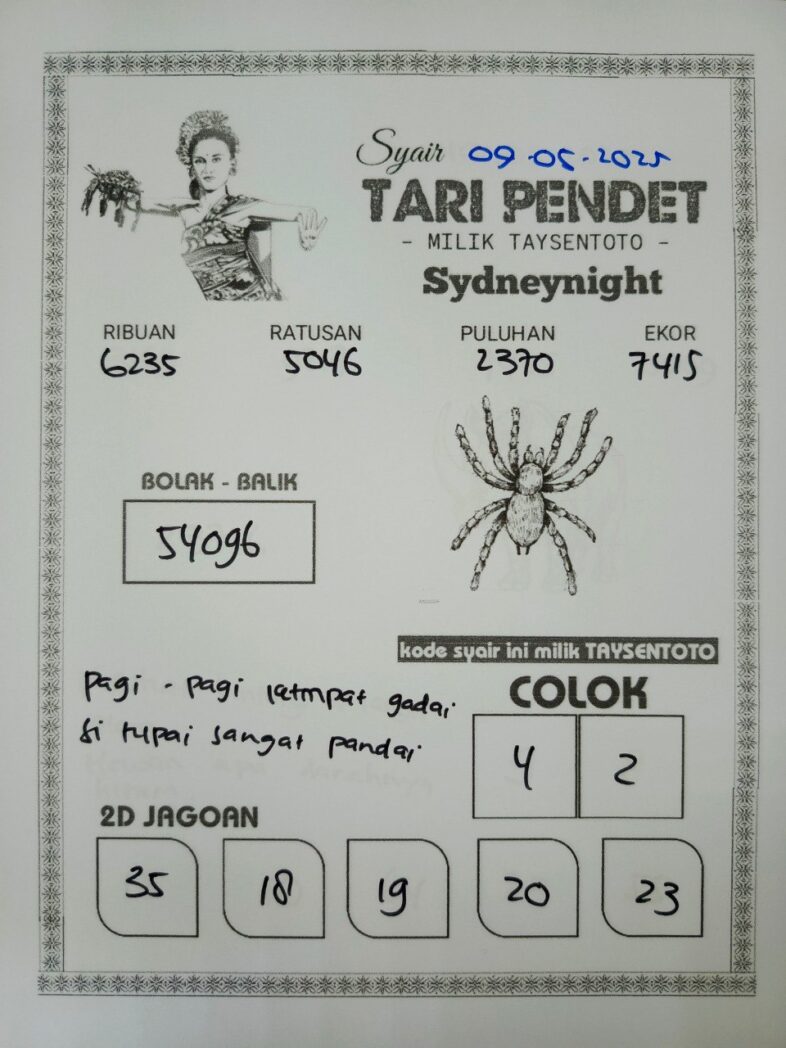 Syair 09-05-2025
TARI PENDET
- MILIK TAYSENTOTO -
Sydneynight
RIBUAN RATUSAN PULUHAN EKOR
6235 5046 2370 7415
BOLAK - BALIK
54096
kode syair ini milik TAYSENTOTO
pagi - pagi gadai
si tupai sangat pandai
COLOK
4 2
2D JAGOAN
35 18 19 20 23